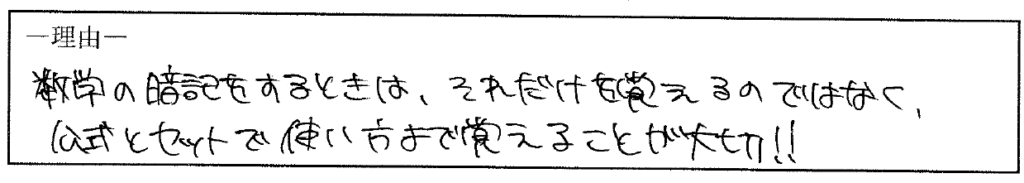 ―理由―
数学の暗記をするときは、それだけを覚えるのではなく、
公式とセットで使い方まで覚えることが大切!!